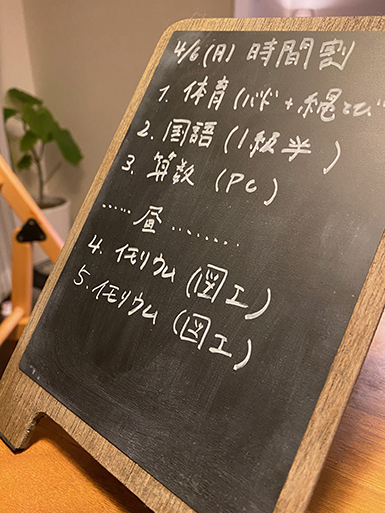 4/6(月) 時間割
1. 体育(バド+縄とび
2. 国語(1級半)
3. 算数(PC)
......昼.........
4. イモリウム(図工)
5. イモリウム(図工)